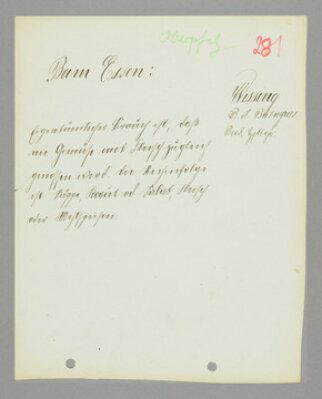 Oberpfalz
281
Beim Essen:
Eigentümlicher Brauch ist, daß
Gemüse mit Fleisch zugleich
genossen wird. Die Reihenfolge
ist Suppe, Kraut od. Salat, Fleisch
oder Mehlspeisen.